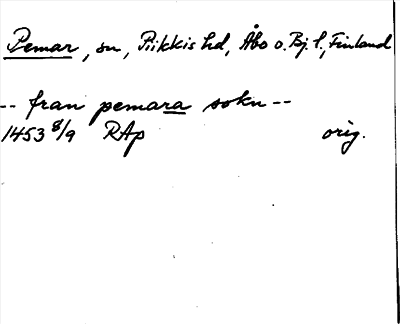 Pemar, sn, Piikkis hd, Åbo o. Bj. l, Finland
-- fran pemara sokn --
1453 8/9 RAp orig.